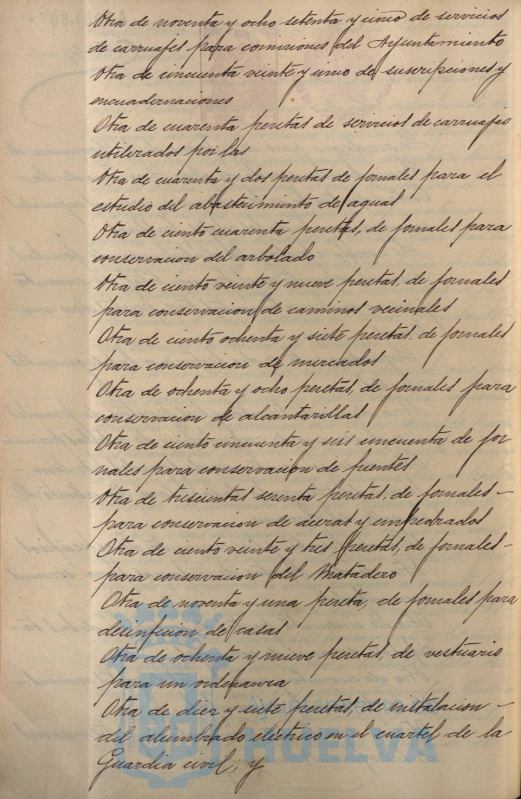 Otra de noventa y ocho setenta y uno de servicios
de carruajes para comisiones del Ayuntamiento
Otra de cincuenta veinte y uno de suscripciones y
encuadernaciones
Otra de cuarenta pesetas de servicios de carruajes
utilizados por
Otra de cuarenta y dos pesetas de jornales para el
estudio del abastecimiento de aguas
Otra de ciento cuarenta pesetas, de jornales para
conservacion del arbolado
Otra de ciento veinte y nueve pesetas, de jornales
para conservacion de caminos vecinales
Otra de ciento ochenta y siete pesetas, de jornales
para conservacion de mercados
Otra de ochenta y ocho pesetas, de jornales para
conservacion de alcantarillas
Otra de ciento cincuenta y seis cincuenta de jor
nales para conservacion de fuentes
Otra de trescientas sesenta pesetas, de jornales-
para conservacion de aceras y empedrados
Otra de ciento veinte y tres pesetas, de jornales-
para conservacion del Matadero
Otra de noventa y una peseta, de jornales para
desinfecion de casas
Otra de ochenta y nueve pesetas, de vestuario
para un ordenanza
Otra de diez y siete pesetas, de instalacion -
del alumbrado electrico en el cuartel de la
Guardia civil, y
HUELVA